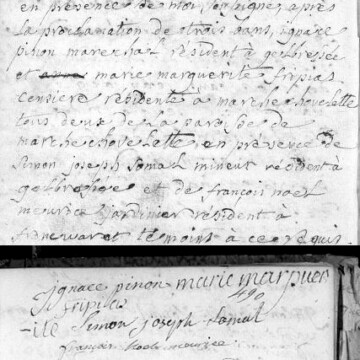 en présence de moi soussigné après
la proclamation de trois bans, ignace
pinon marechal résident à gelbresée
et marie marguerite fripias
censiere résidente à marchovelette
tous deux de la paroisse de
marchovelette, en présence de
Simon joseph Somal mineur résident à
gelbresée et de françois noel
meurice jardinier résident à
francwaret témoins à ce requis.
ignace pinon marie marguer
fripias
-ite Simon joseph Somal
françois Noel meurice